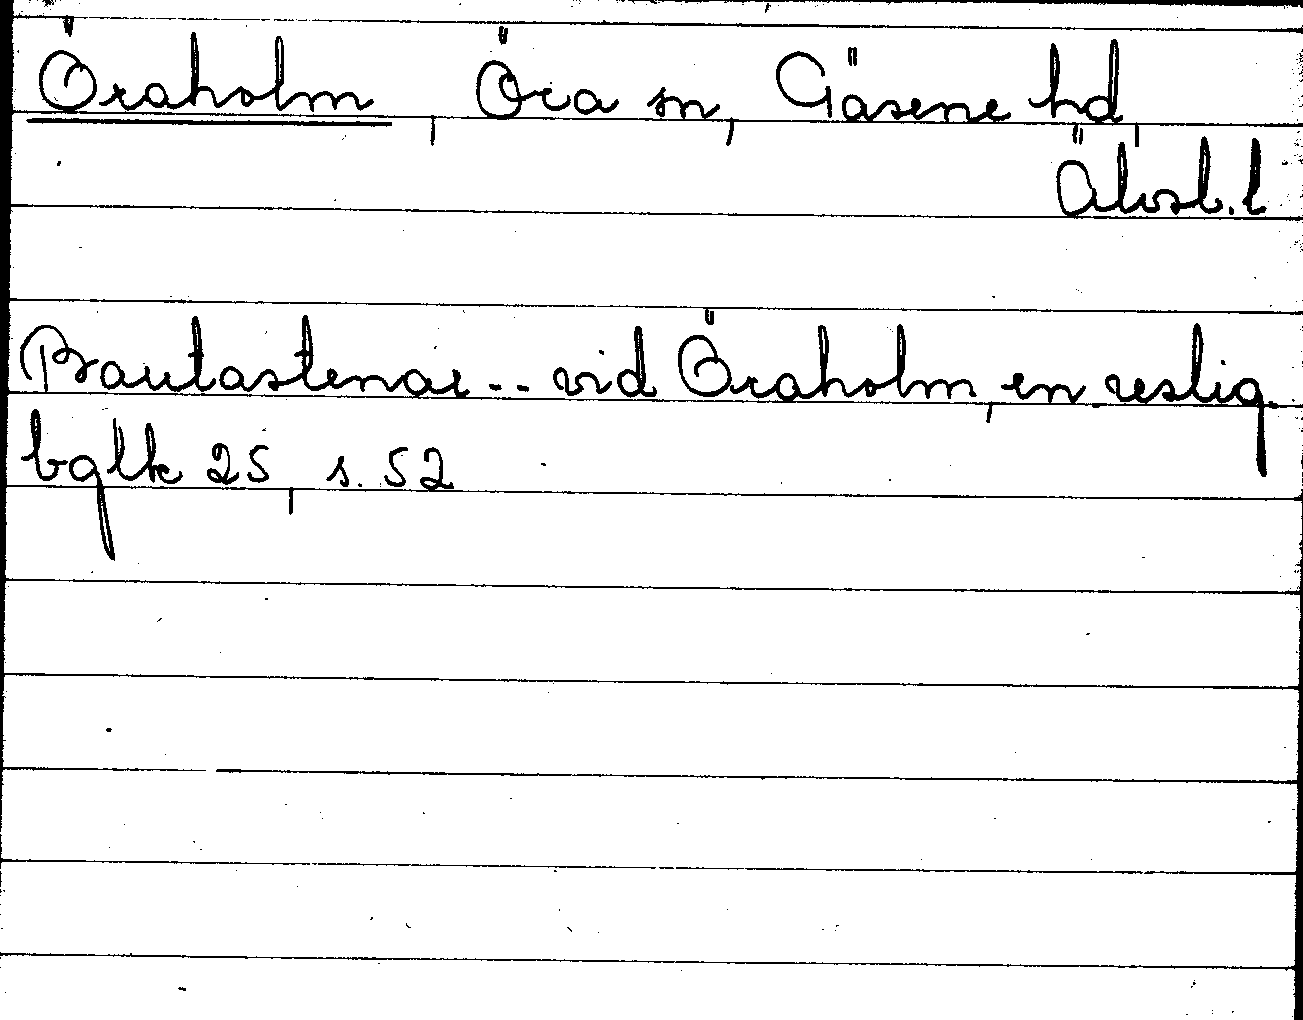 Öraholm, Öra sn, Gäsene hd,
Älvsb. l
Bautastenar -- vid Öraholm, en reslig
bglk 25, s. 52